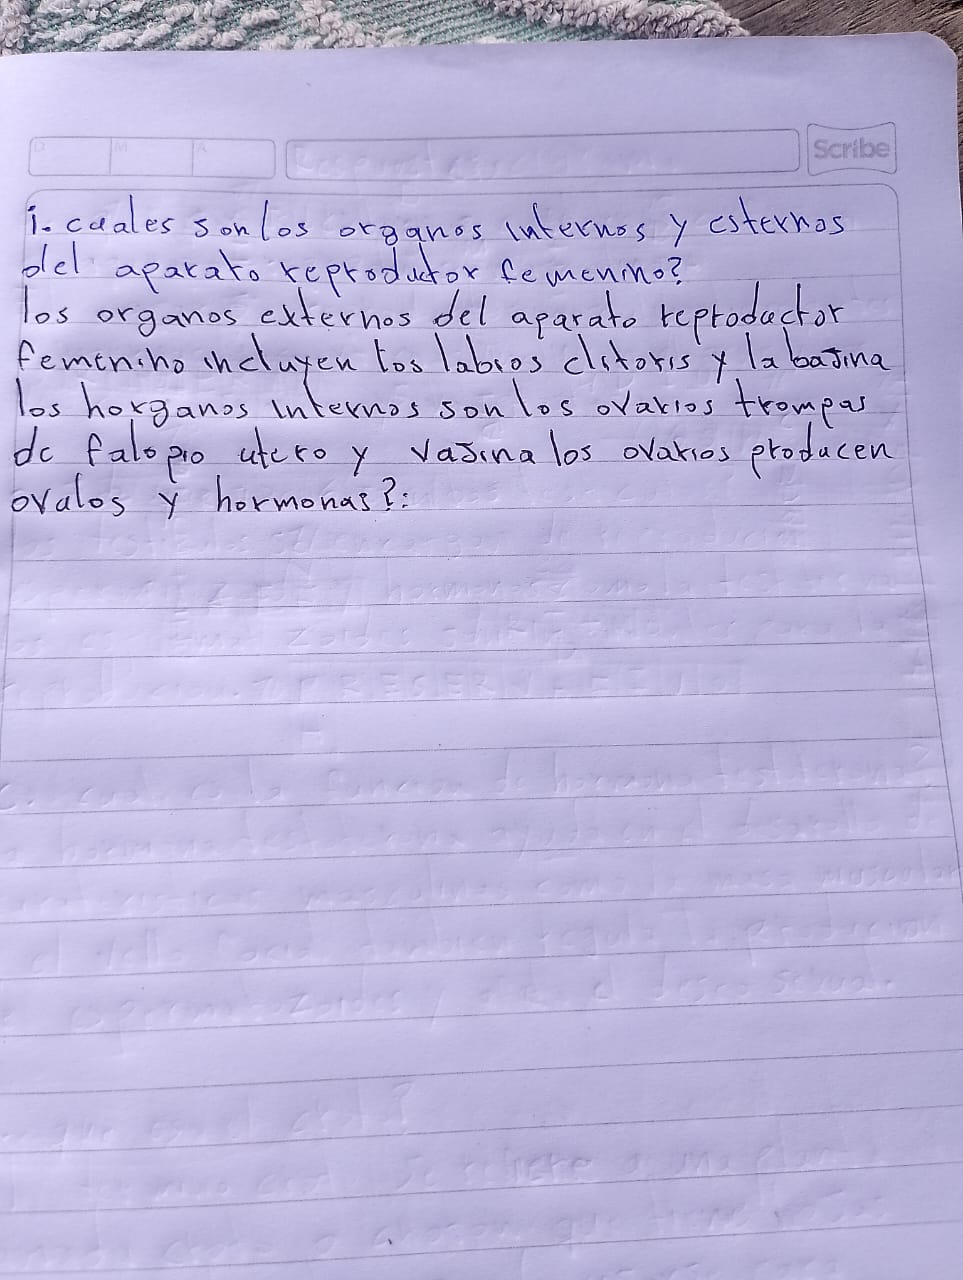 D M A Scribe
i. cuales son los organos internos y esternos
del aparato reproductor femenino?
los organos externos del aparato reproductor
femenino incluyen los labios clitoris y la bajina
los horganos internos son los ovarios trompas
de falopio utero y vajina los ovarios producen
ovulos y hormonas?: